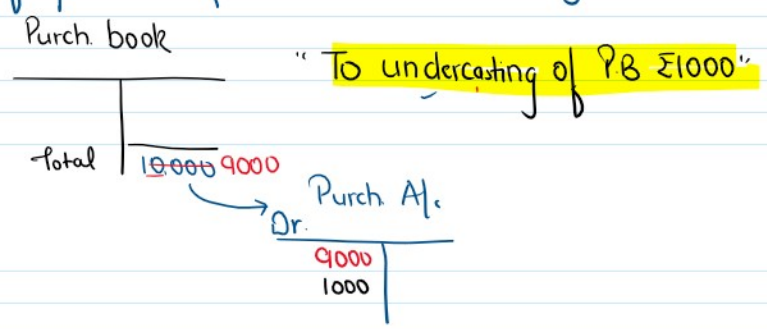 Purch. book
" To undercasting of P.B ₹1000"
Total 10,000 9000
Purch. A/c
Dr.
9000
1000